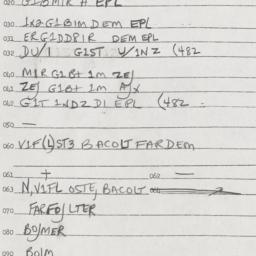 020 G1BMIR A EPL
030 1x2G1BIMDEM EPL
031 ERG1DDPIR DEM EPL
032 DU/1 G1ST Y/1NZ (482
040 M1R G1B+ 1m ZEJ
041 ZEJ G1B+ 1m AJX
042 G1T 1NDZ D1 EPL (482
050 —
060 V1F(L)ST3 BACOLT FARDEM
061 + 062 —
063 N,V1FL OSTE, BACOLT
070 FARFOJLTER
080 BOJMER
090 BOJM